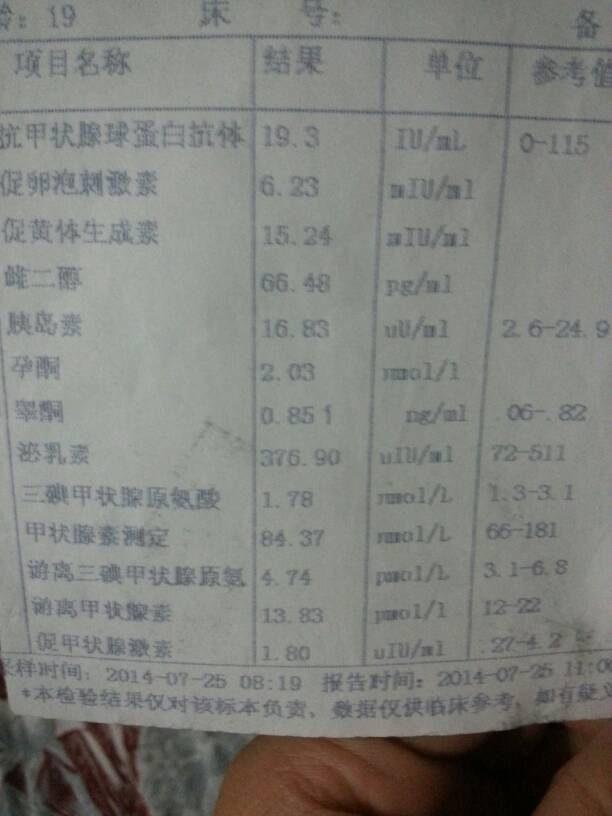 龄: 19 床 号: 备
项目名称 结果 单位 参考值
抗甲状腺球蛋白抗体 19.3 IU/mL 0-115
促卵泡刺激素 6.23 mIU/ml
促黄体生成素 15.24 mIU/ml
雌二醇 66.48 pg/ml
胰岛素 16.83 uU/ml 2.6-24.9
孕酮 2.03 nmol/l
睾酮 0.851 ng/ml .06-.82
泌乳素 376.90 uIU/ml 72-511
三碘甲状腺原氨酸 1.78 nmol/L 1.3-3.1
甲状腺素测定 84.37 nmol/L 66-181
游离三碘甲状腺原氨 4.74 pmol/L 3.1-6.8
游离甲状腺素 13.83 pmol/l 12-22
促甲状腺激素 1.80 uIU/ml .27-4.2
采样时间: 2014-07-25 08:19 报告时间: 2014-07-25 11:0
*本检验结果仅对该标本负责, 数据仅供临床参考, 如有疑义